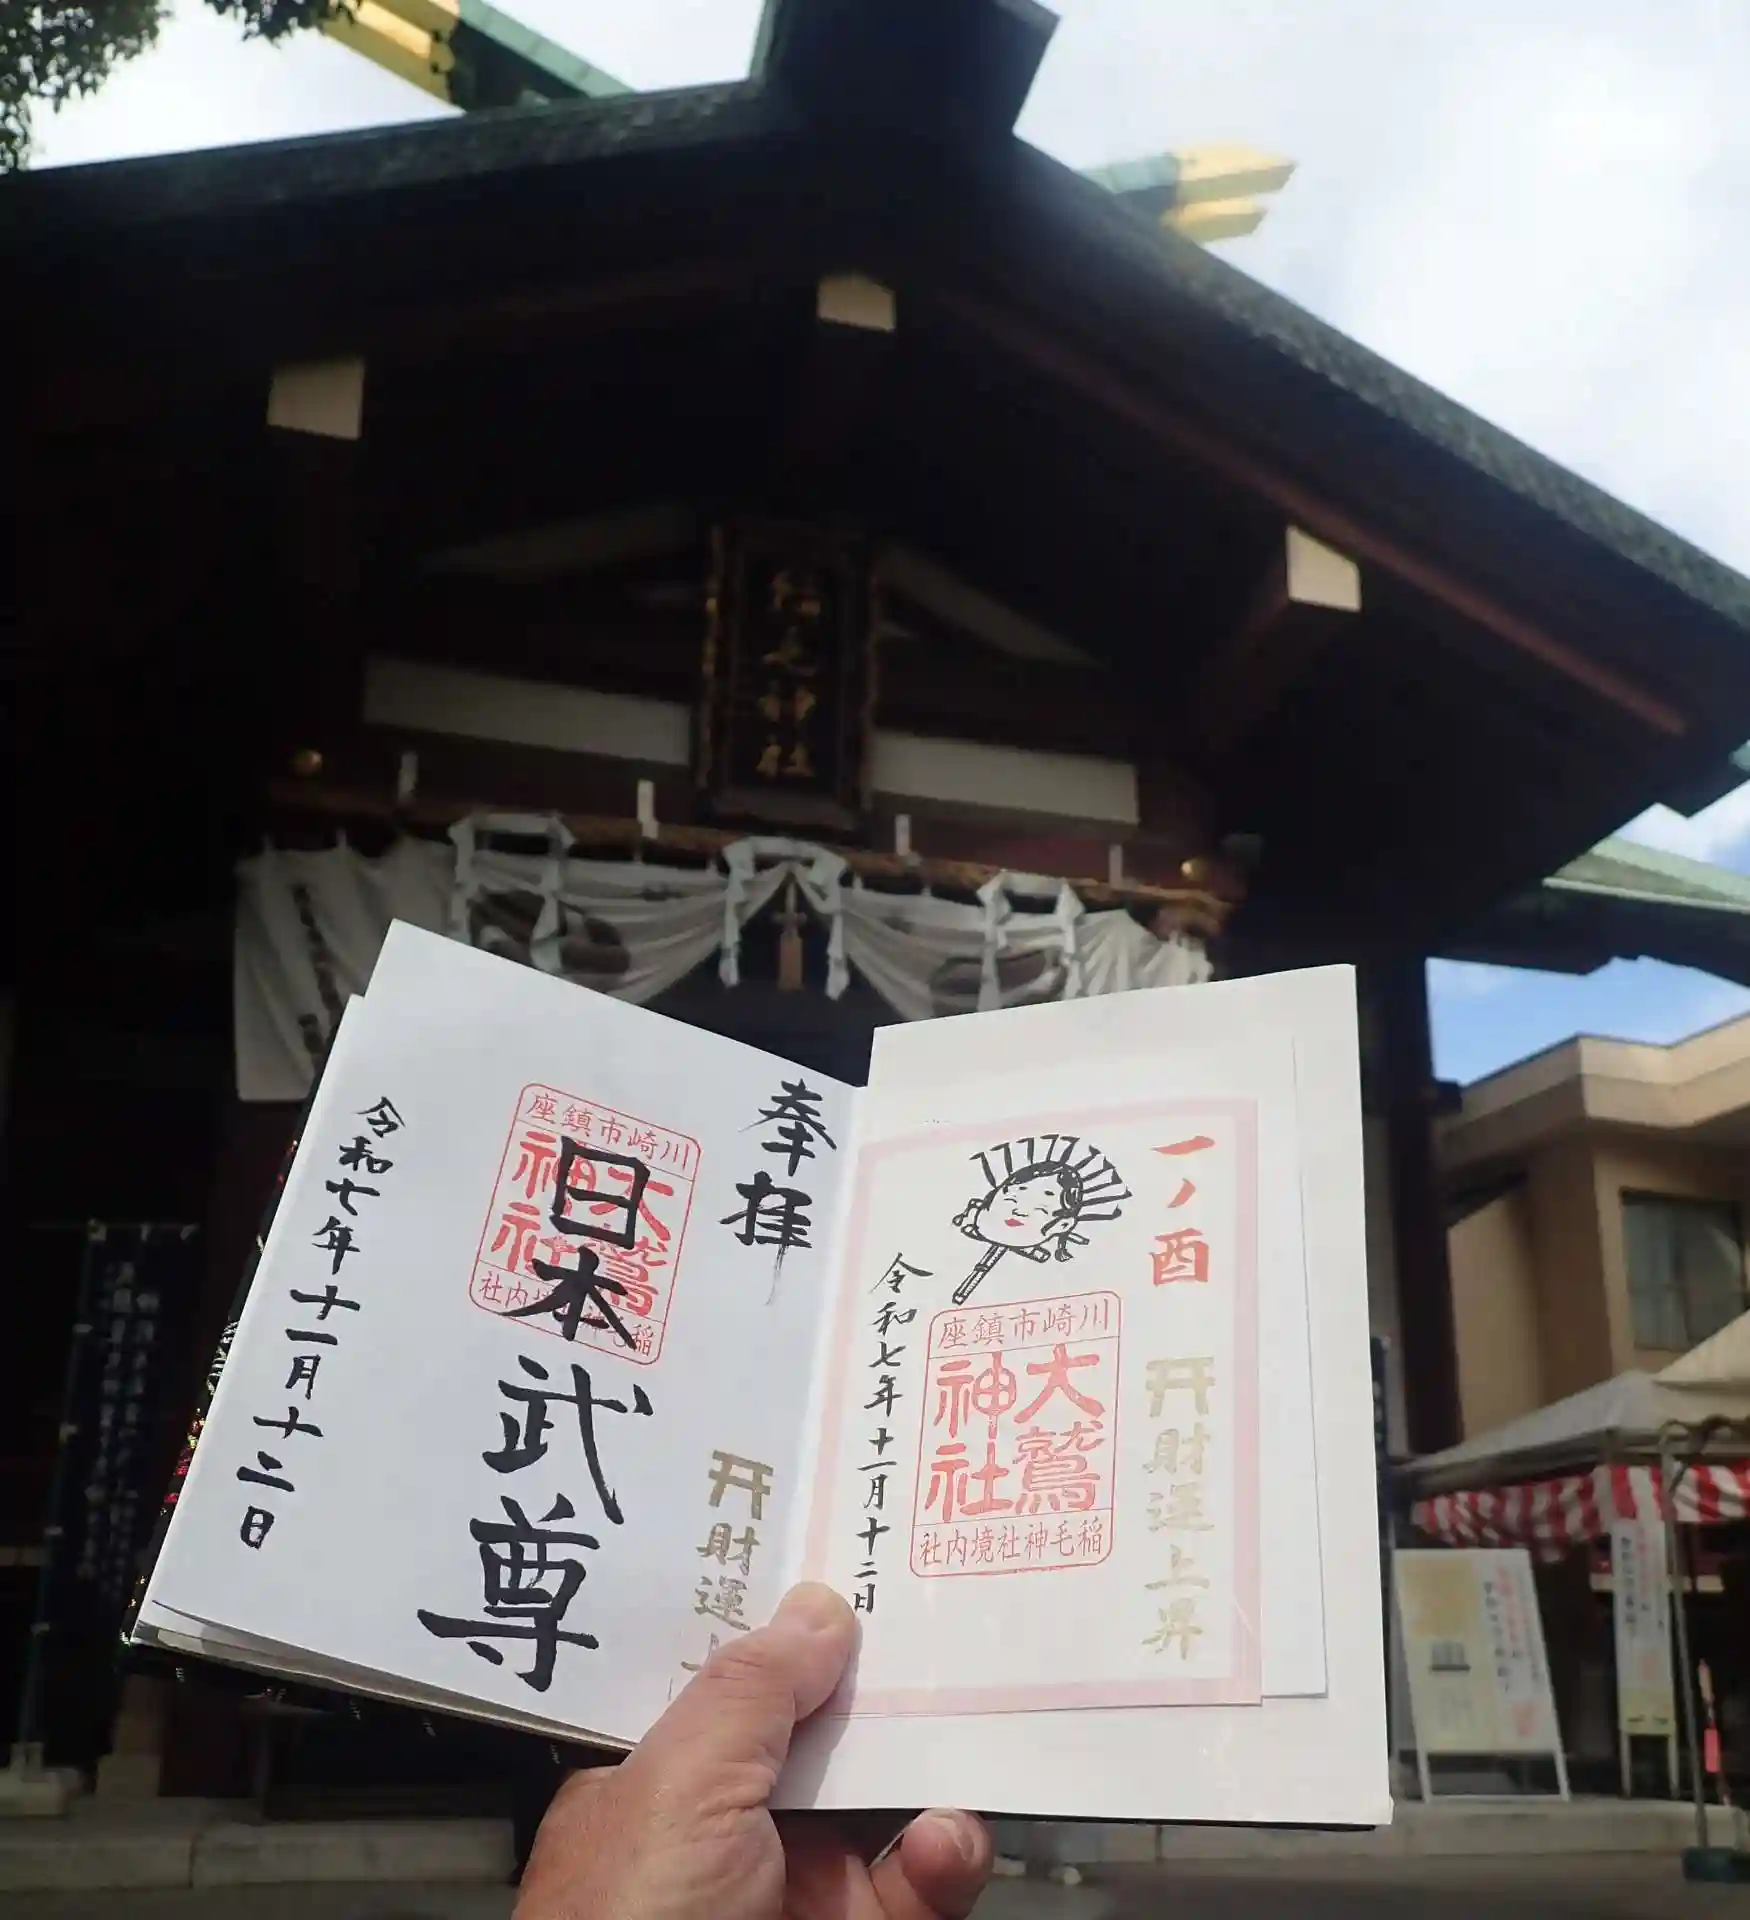 稲毛神社
奉拝
川崎市鎮座
大鷲神社
稲毛神社境内社
日本武尊
財運上
令和七年十一月十二日
一ノ酉
財運上昇
川崎市鎮座
大鷲神社
稲毛神社境内社
令和七年十一月十二日